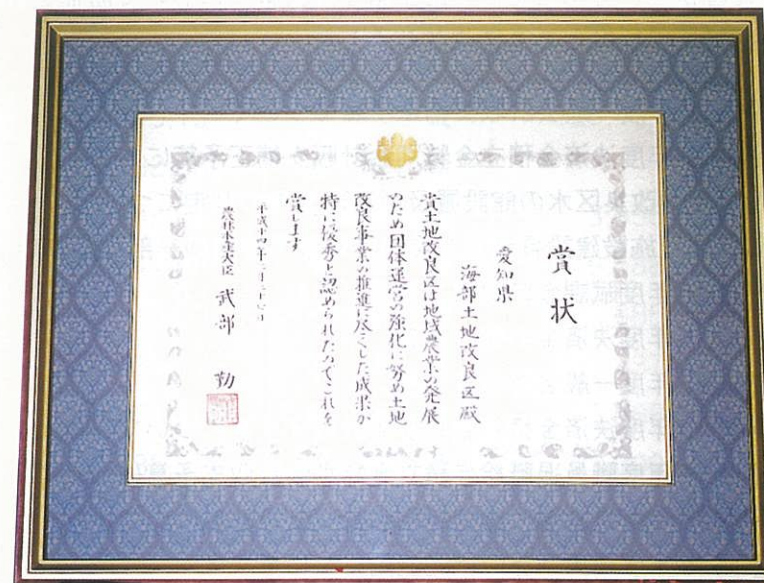 賞状
愛知県
海部土地改良区殿
貴土地改良区は地域農業の発展
のため団体運営の強化に努め土地
改良事業の推進に尽くした成果が
特に優秀と認められたのでこれを
賞します
平成十四年三月
農林水産大臣 武部 勤